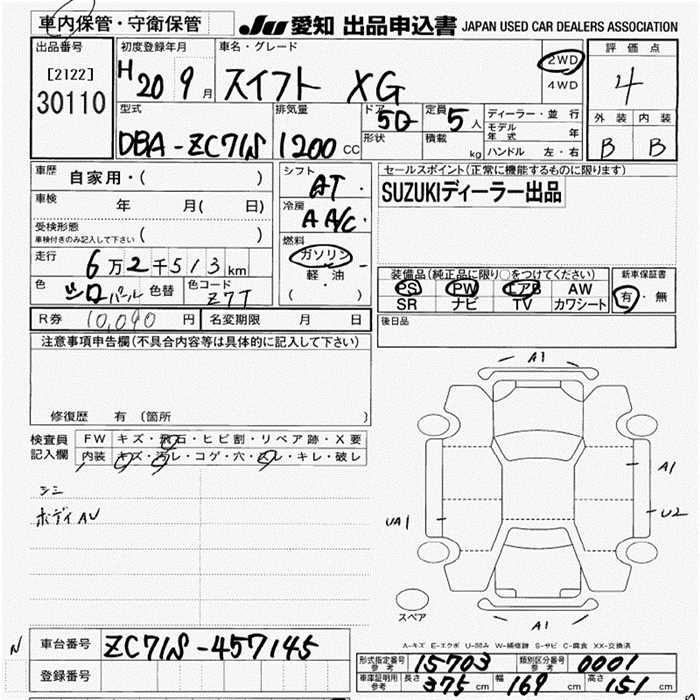 車内保管・守衛保管
JU 愛知 出品申込書 JAPAN USED CAR DEALERS ASSOCIATION
出品番号 初度登録年月 車名・グレード 評価点
[2122] H 20 9月 スイフト XG 2WD 4
30110 4WD
外装 内装
型式 排気量 ドア 定員 ディーラー・並行
DBA-ZC71S 1200 CC 5D 5人 モデル年式 年 B B
形状 積載 kg ハンドル 左・右
車歴 自家用・( ) シフト セールスポイント(正常に機能するものに限ります)
AT SUZUKIディーラー出品
車検 年 月( 日) 冷房
AAC
受検形態
車検付きのみ記入して下さい ( )
燃料
走行 6万2千513km ガソリン
軽油
( )
装備品(純正品に限り○をつけてください) 新車保証書
色 シロパール 色替 色コード Z7T PS PW エアB AW 有・無
SR ナビ TV カワシート
R券 10,090円 名変期限 月 日 後日品
注意事項申告欄(不具合内容等は具体的に記入して下さい)
修復歴 有(箇所 )
検査員 FW キズ・飛石・ヒビ割・リペア跡・X要
記入欄 内装 キズ・汚レ・コゲ・穴・スレ・キレ・破レ
シミ
ボディAU
A1
A1
UA1
U2
スペア
A1
A-キズ E-エクボ U-凹み W-補修跡 S-サビ C-腐食 XX-交換済
N
車台番号 ZC71S-457145
登録番号
形式指定番号 参考 15703 類別区分番号 参考 0001
車庫証明用 参考 長さ 375cm 幅 169cm 高さ 151cm